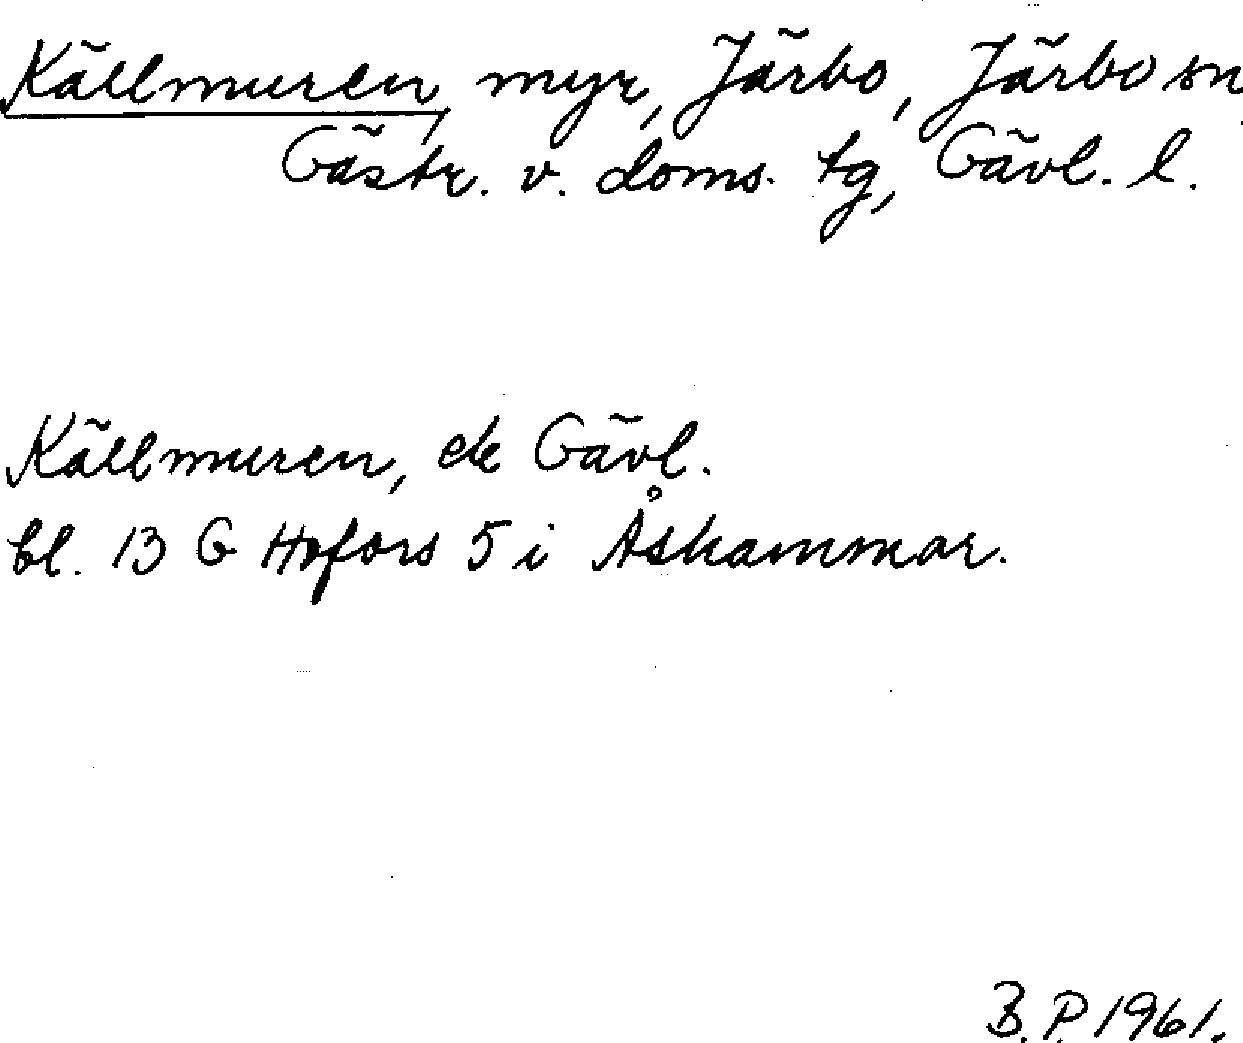 Källmuren, myr, Järbo, Järbo sn
Gästr. v. doms. tg, Gävl. l.
Källmuren, ek Gävl.
bl. 13 G Hofors 5 i Åshammar.
B.P. 1961.